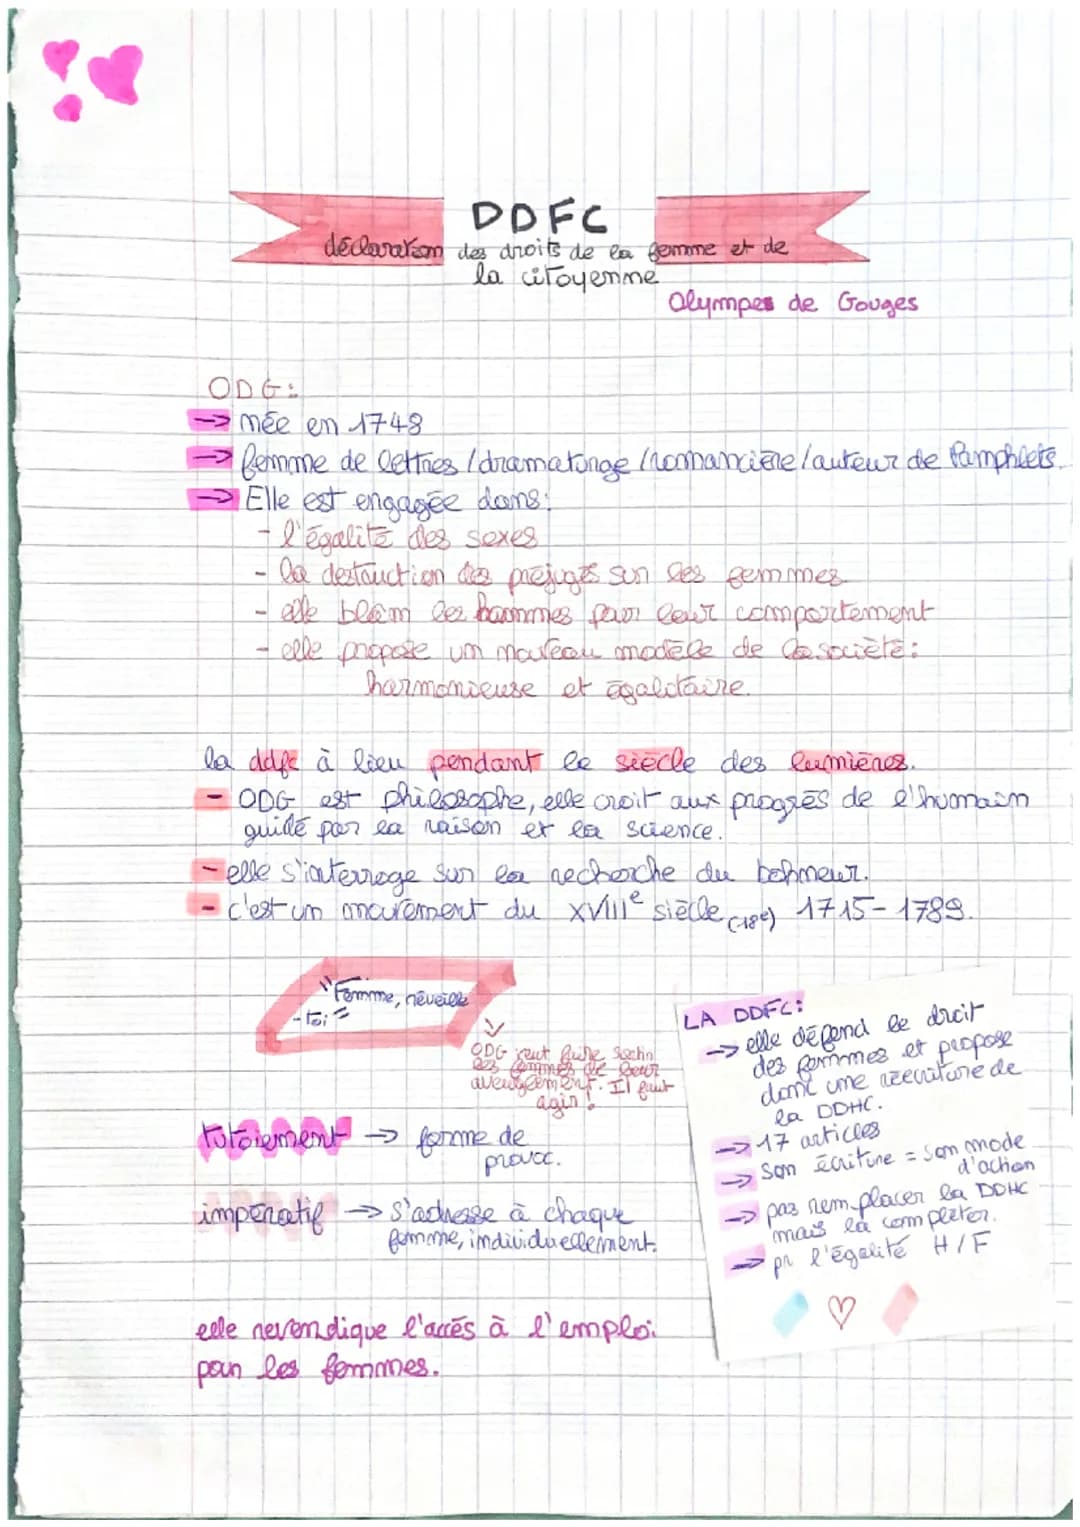 DDFC
déclaration des droits de la femme et de
la citoyenne
Olympes de Gouges
ODG:
→ née en 1748
→ femme de lettres / dramaturge / romancière / auteur de Pamphlets.
→ Elle est engagée dans:
- l'égalité des sexes
- la destruction des préjugés sur les femmes
- elle blâm les hommes pour leur comportement
- elle propose un nouveau modèle de la société:
harmonieuse et égalitaire.
la ddfc à lieu pendant le siècle des lumières.
- ODG est philosophe, elle croit aux progrès de l'humain
guidé par la raison et la science.
- elle s'interroge sur la recherche du bohneur.
- c'est un mouvement du XVIIIe siècle (18e) 1715-1789.
"Femme, réveille
-toi"
ODG veut faire sortir
les femmes de leur
aveuglement. Il faut
agir!
tutoiement → forme de
provoc.
impératif → s'adresse à chaque
femme, individuellement.
elle revendique l'accès à l'emploi
pour les femmes.
LA DDFC:
→ elle défend le droit
des femmes et propose
donc une réécriture de
la DDHC.
→ 17 articles
→ son écriture = son mode
d'action
→ pas remplacer la DDHC
mais la compléter.
→ pr l'égalité H/F